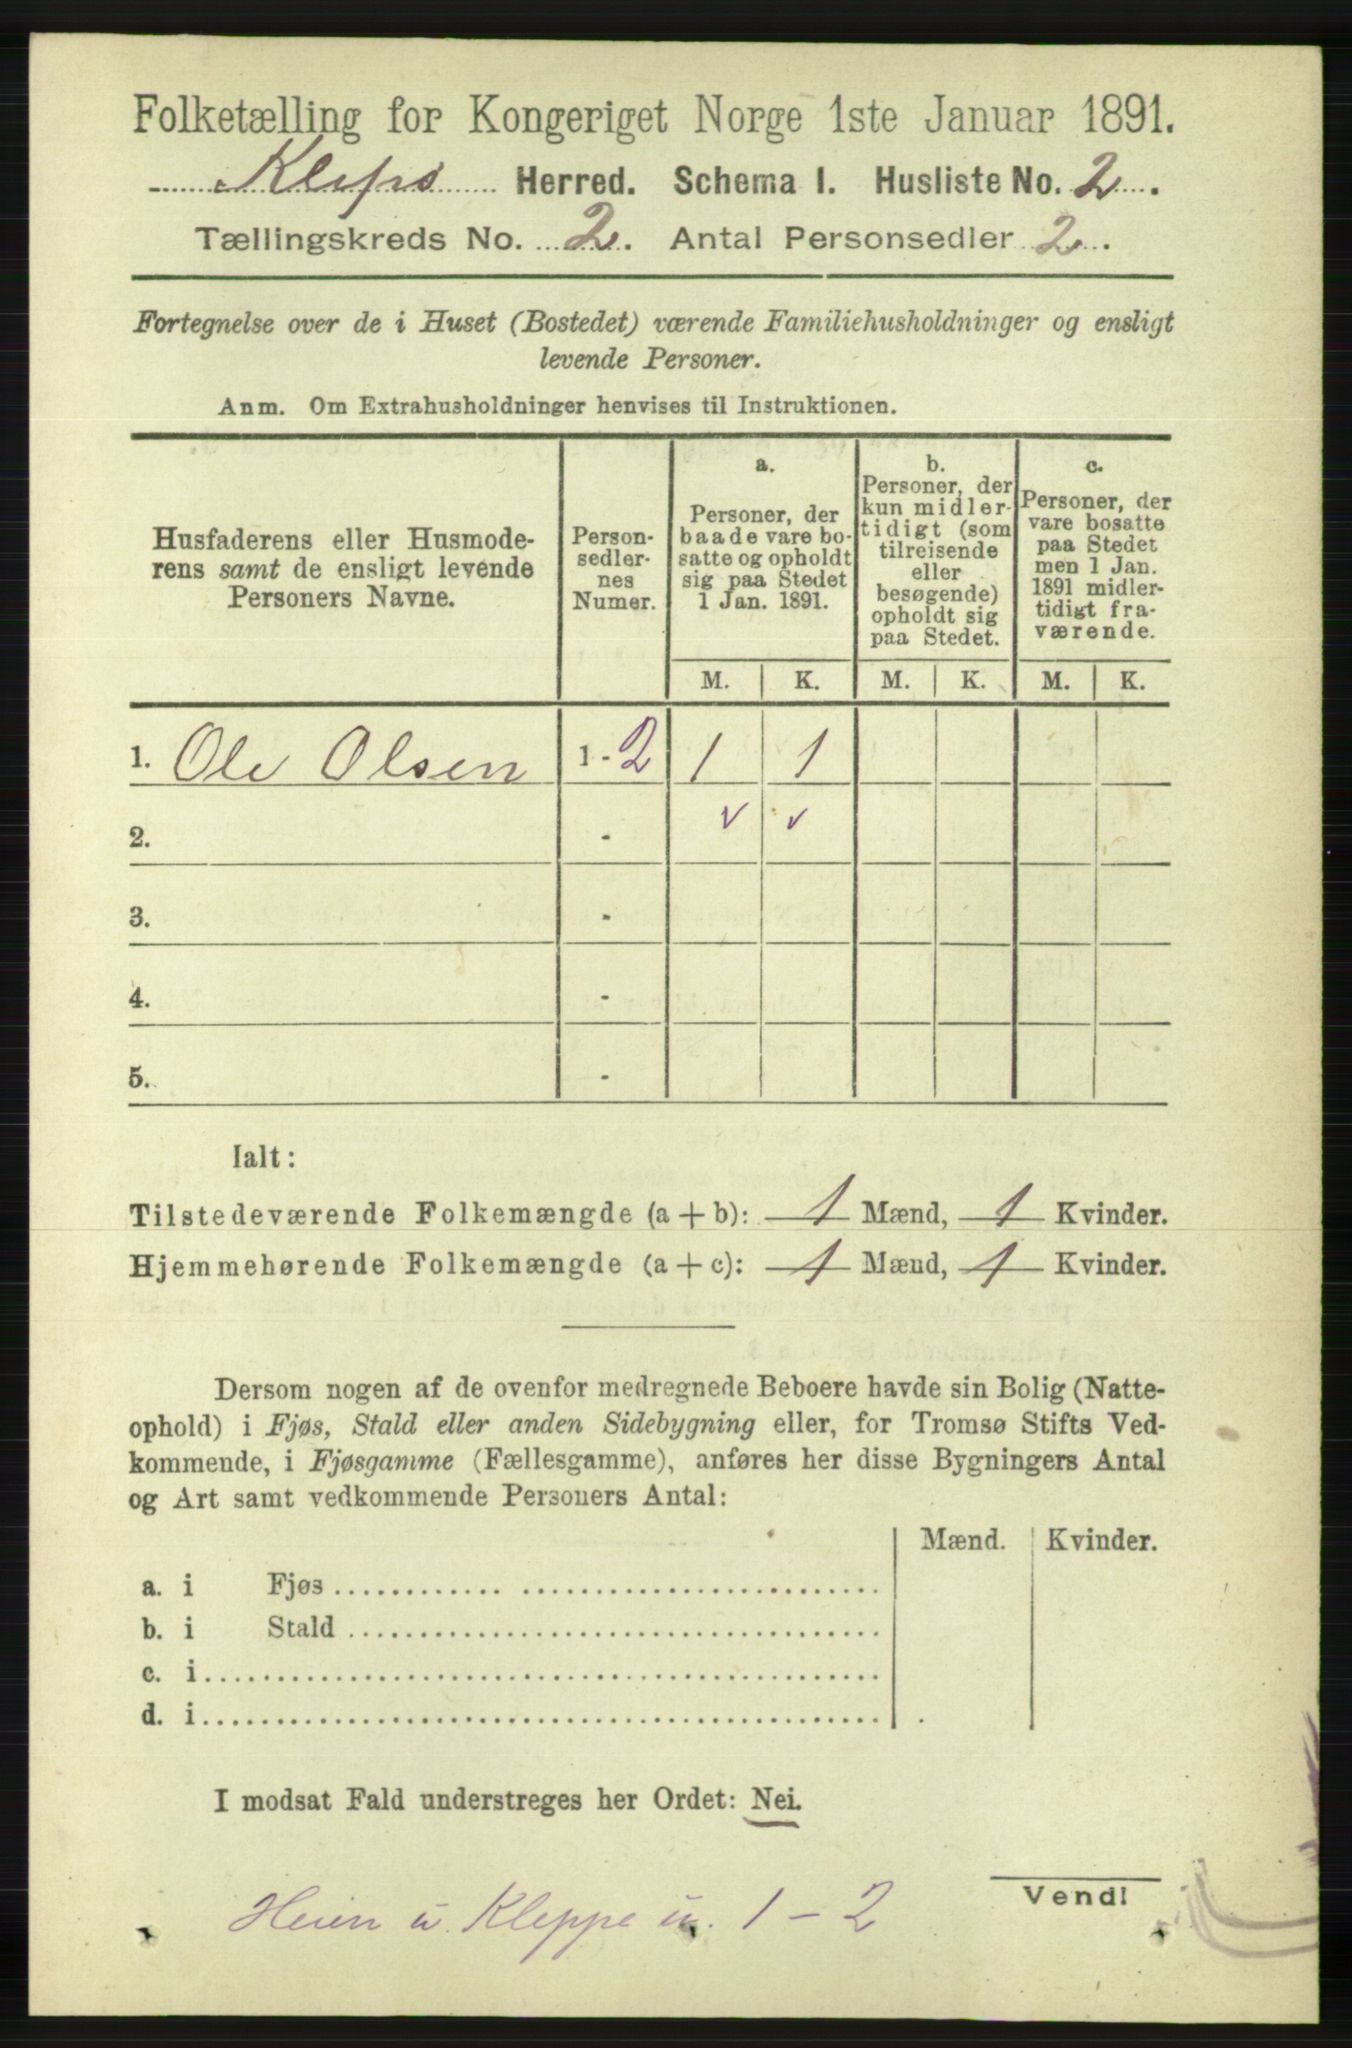 Folketælling for Kongeriget Norge 1ste Januar 1891.
Kleps Herred. Schema I. Husliste No. 2.
Tællingskreds No. 2. Antal Personsedler 2.
Fortegnelse over de i Huset (Bostedet) værende Familiehusholdninger og ensligt
levende Personer.
Anm. Om Extrahusholdninger henvises til Instruktionen.
Husfaderens eller Husmode-
rens samt de ensligt levende
Personers Navne.
Person-
sedler-
nes
Numer.
a.
Personer, der
baade vare bo-
satte og opholdt
sig paa Stedet
1 Jan. 1891.
b.
Personer, der
kun midler-
tidigt (som
tilreisende
eller
besøgende)
opholdt sig
paa Stedet.
c.
Personer, der
vare bosatte
paa Stedet
men 1 Jan.
1891 midler-
tidigt fra-
værende.
M. K. M. K. M. K.
1. Ole Olsen 1 - 2 1 1
2. - v v
3. -
4. -
5. -
Ialt:
Tilstedeværende Folkemængde (a + b): 1 Mænd, 1 Kvinder.
Hjemmehørende Folkemængde (a + c): 1 Mænd, 1 Kvinder.
Dersom nogen af de ovenfor medregnede Beboere havde sin Bolig (Natte-
ophold) i Fjøs, Stald eller anden Sidebygning eller, for Tromsø Stifts Ved-
kommende, i Fjøsgamme (Fællesgamme), anføres her disse Bygningers Antal
og Art samt vedkommende Personers Antal:
Mænd. Kvinder.
a. i Fjøs
b. i Stald
c. i
d. i
I modsat Fald understreges her Ordet: Nei.
Vend!
Heien u. Kleppe u. 1 - 2